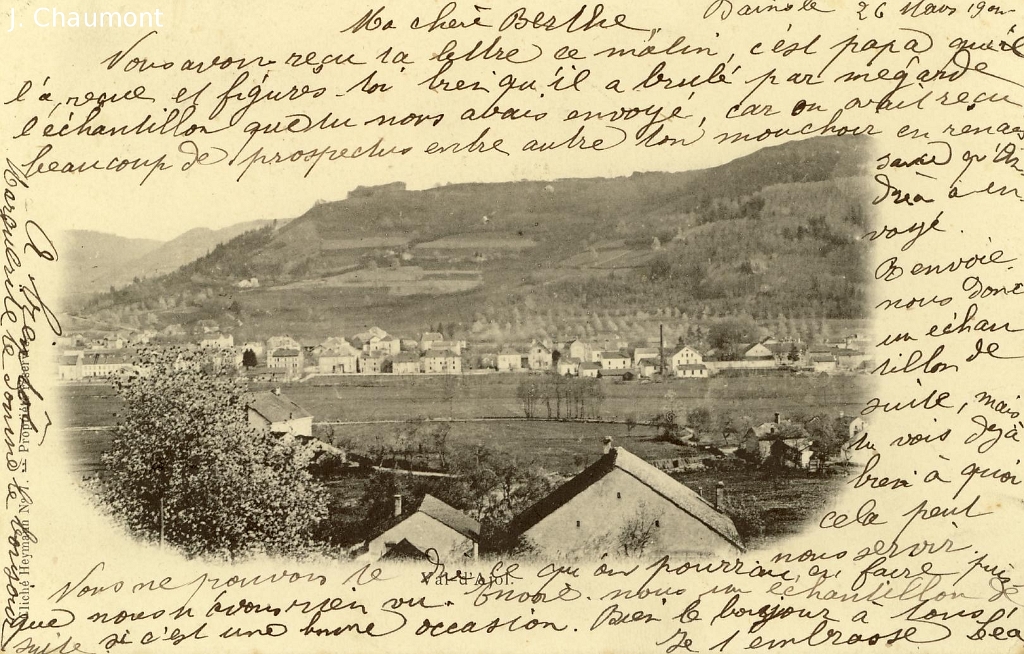 J. Chaumont
Bains le 26 Mars 190
Ma chère Berthe
Nous avons reçu ta lettre ce matin, c'est papa qui
l'a reçue et figures-toi bien qu'il a brulé par mégarde
l'échantillon que tu nous avais envoyé, car on avait reçu
beaucoup de prospectus entre autre ton mouchoir en renais
sance qu'An
dréa a en
voyé.
Renvoie
nous donc
un échan
tillon de
suite, mais
tu vois déjà
bien à quoi
cela peut
nous servir.
Nous ne pouvons te dire ce qu'on pourrait en faire puis
que nous n'avons rien vu. Envoie nous un échantillon de
suite si c'est une bonne occasion. Bien le bonjour à tous!
Je t'embrasse
Marguerite te donne le bonjour
Val-d'Ajol.
Cliché Heymann No 1. — Propriété réservée